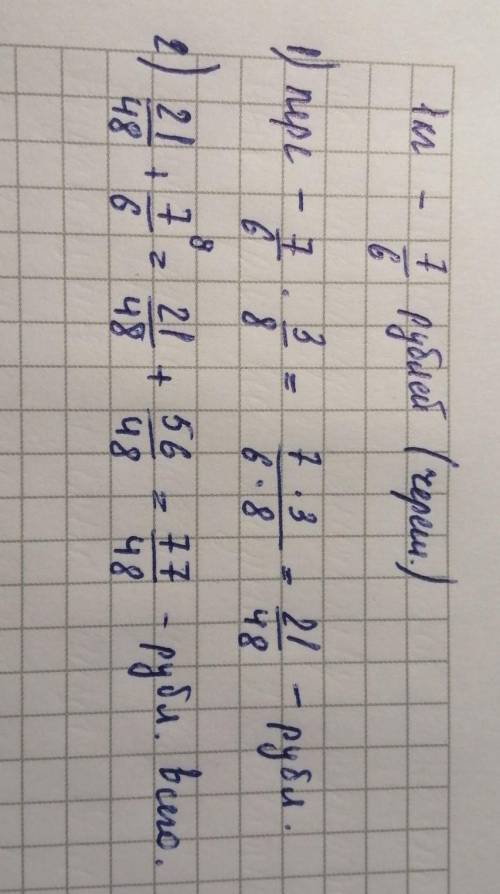 1кг - 7/6 рублей (череш.)
1) перс - 7/6 · 3/8 = 7·3/6·8 = 21/48 - рубл.
2) 21/48 + 7/6 ⁸ = 21/48 + 56/48 = 77/48 - рубл. всего.